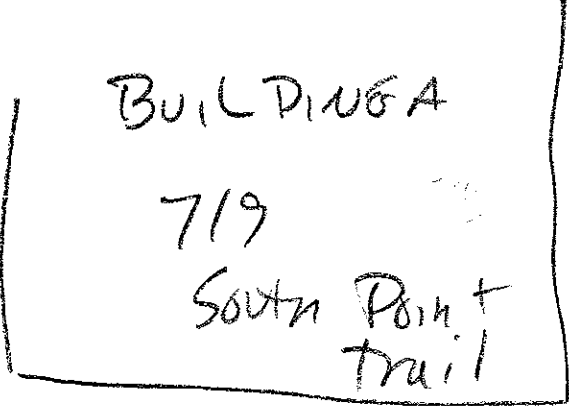 BUILDING A
719
South Point
trail